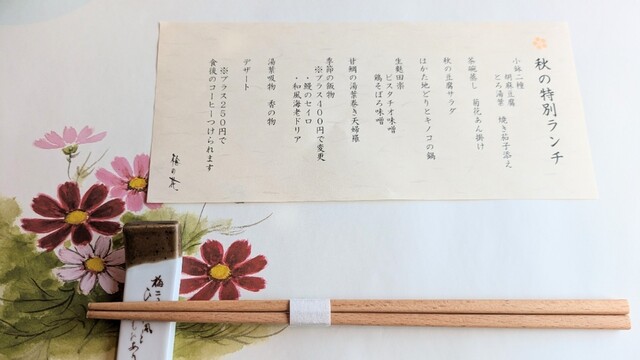 秋の特別ランチ
小鉢二種
胡麻豆腐 焼き茄子添え
とろ湯葉
茶碗蒸し 菊花あん掛け
秋の豆腐サラダ
はかた地どりとキノコの鍋
生麩田楽
ピスタチオ味噌
鶏そぼろ味噌
甘鯛の湯葉巻き天婦羅
季節の飯物
※プラス400円で変更
・鰻のセイロ
・和風海老ドリア
湯葉吸物 香の物
デザート
※プラス250円で
食後のコーヒーつけられます
梅の花